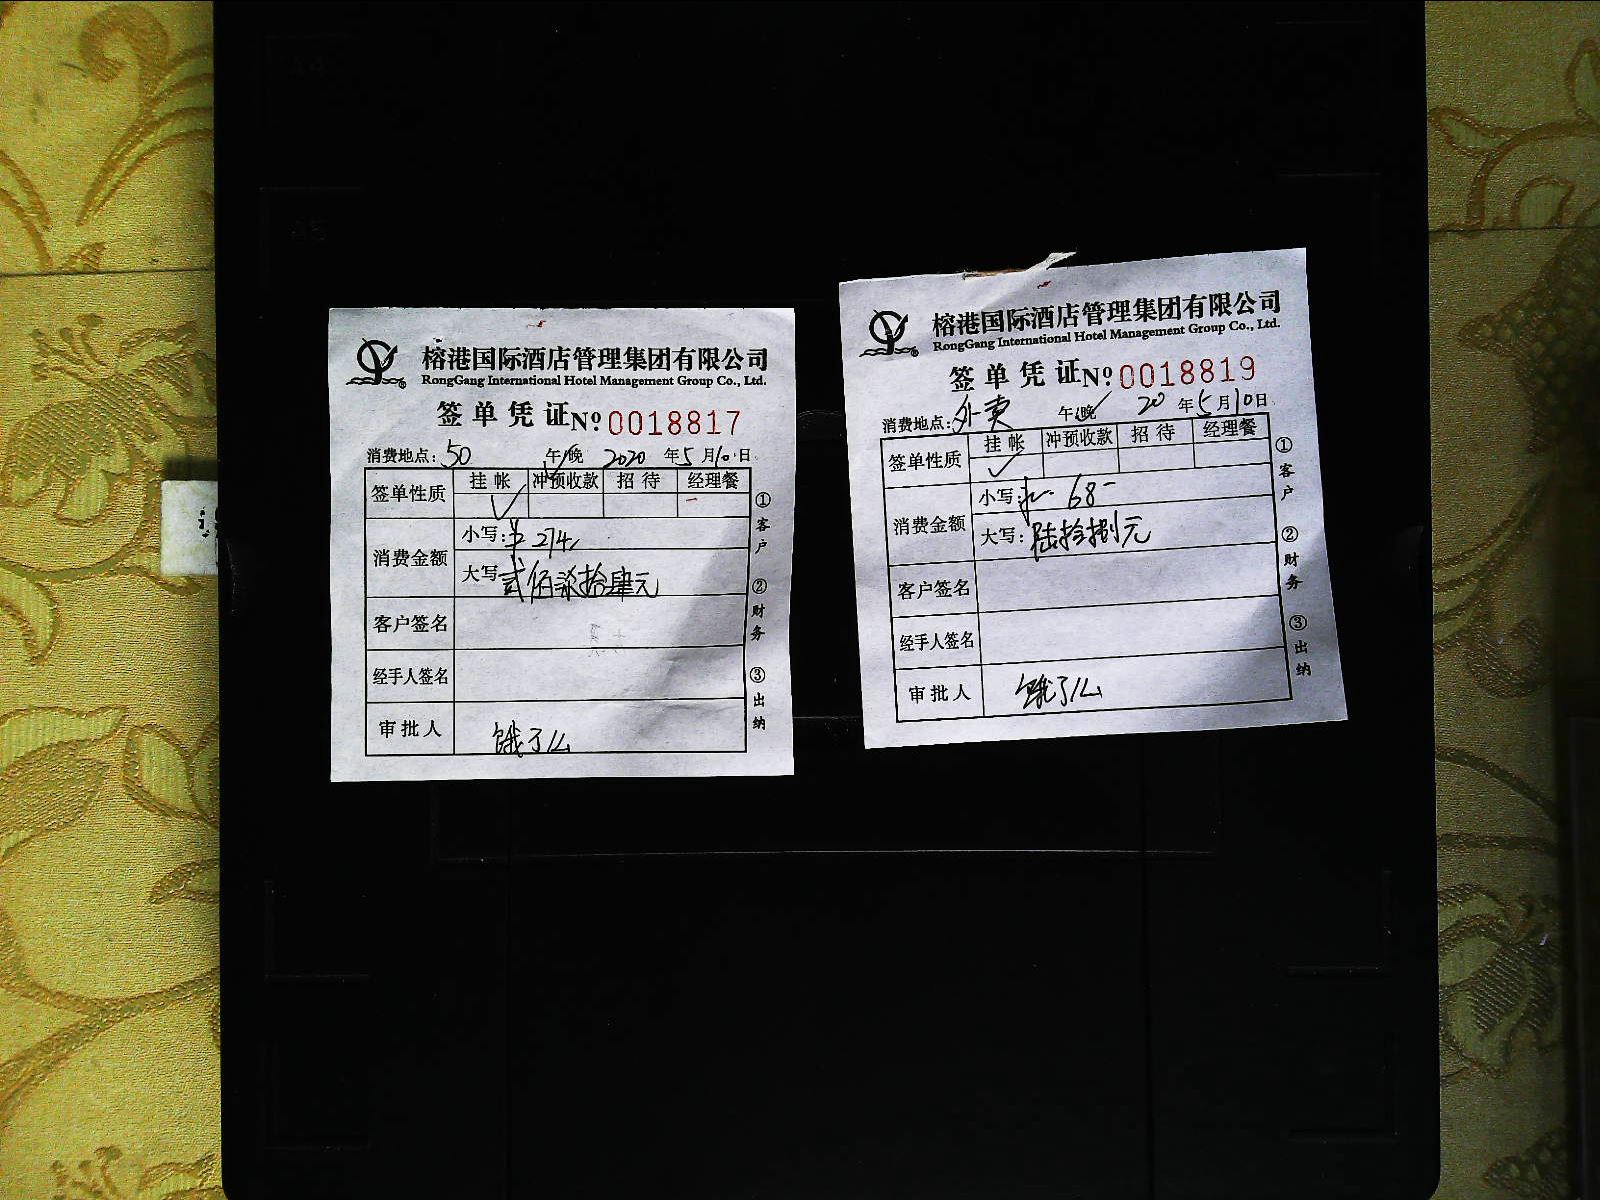 榕港国际酒店管理集团有限公司
RongGang International Hotel Management Group Co., Ltd.
签单凭证 № 0018817
消费地点: 50 午/晚 2020年5月10日
签单性质 挂帐 冲预收款 招待 经理餐
✓
消费金额 小写: 274
大写: 贰佰柒拾肆元
客户签名
经手人签名
审批人 饿了么
①客户 ②财务 ③出纳
榕港国际酒店管理集团有限公司
RongGang International Hotel Management Group Co., Ltd.
签单凭证 № 0018819
消费地点: 外卖 午/晚 20年5月10日
签单性质 挂帐 冲预收款 招待 经理餐
✓
消费金额 小写: 68-
大写: 陆拾捌元
客户签名
经手人签名
审批人 饿了么
①客户 ②财务 ③出纳